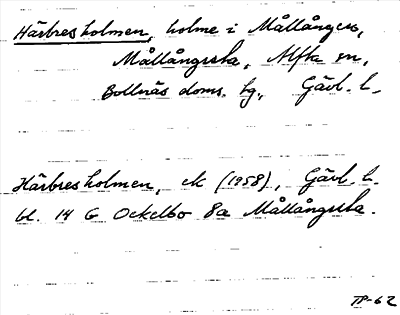 Härbresholmen, holme i Mållången,
Mållångssta, Alfta sn,
Bollnäs doms. hg, Gävl. l.
Härbresholmen, ek (1958), Gävl. l.
bl. 14 G Ockelbo 8a Mållångssta.
TP-62